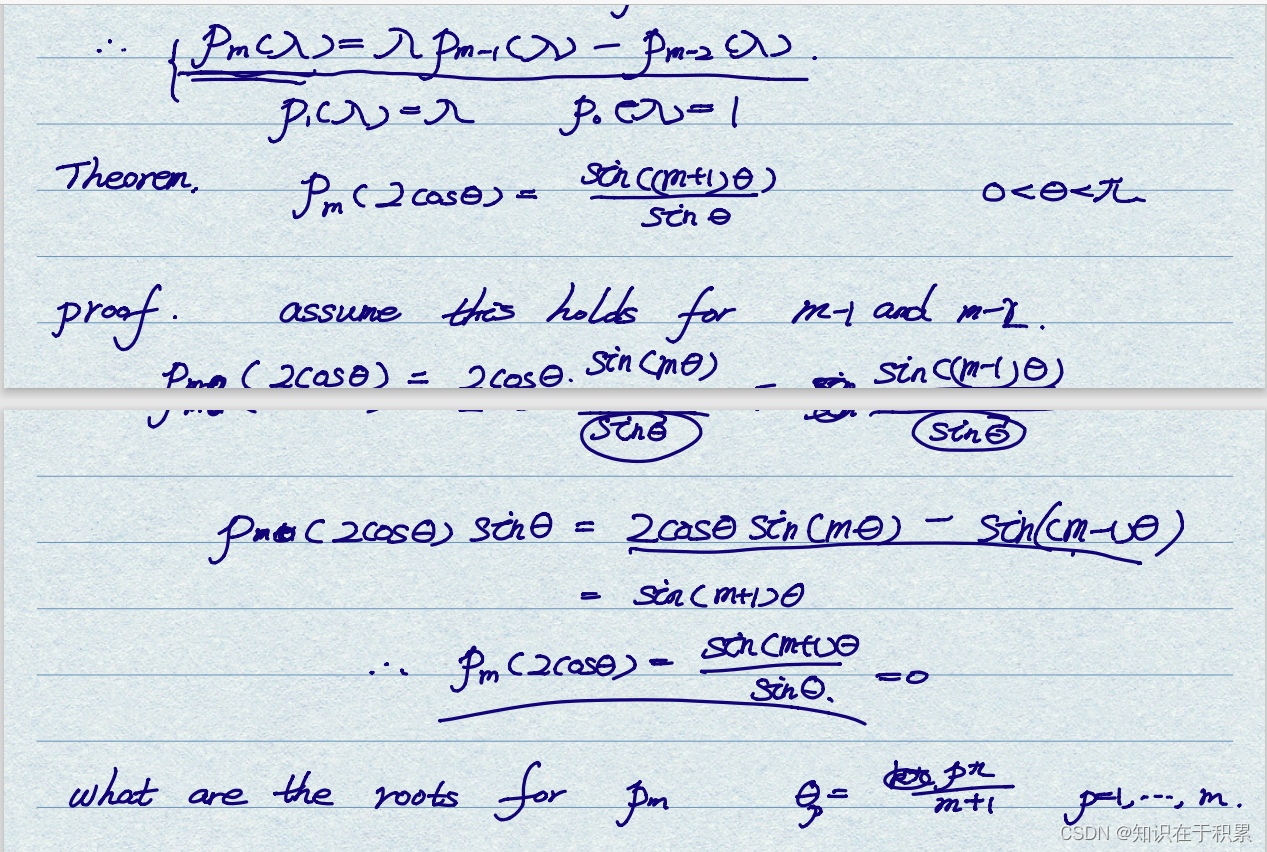 ∴ { pₘ(λ) = λ pₘ₋₁(λ) − pₘ₋₂(λ).
p₁(λ) = λ p₀(λ) = 1
Theorem. pₘ(2cosθ) = sin((m+1)θ) / sinθ 0<θ<π
proof. assume this holds for m-1 and m-2.
pₘ(2cosθ) = 2cosθ · sin(mθ) / sinθ − sin((m-1)θ) / sinθ
pₘ(2cosθ) sinθ = 2cosθ sin(mθ) − sin((m-1)θ)
= sin(m+1)θ
∴ pₘ(2cosθ) = sin(m+1)θ / sinθ. = 0
what are the roots for pₘ θₚ = pπ / m+1 p=1,⋯,m.
CSDN @知识在于积累